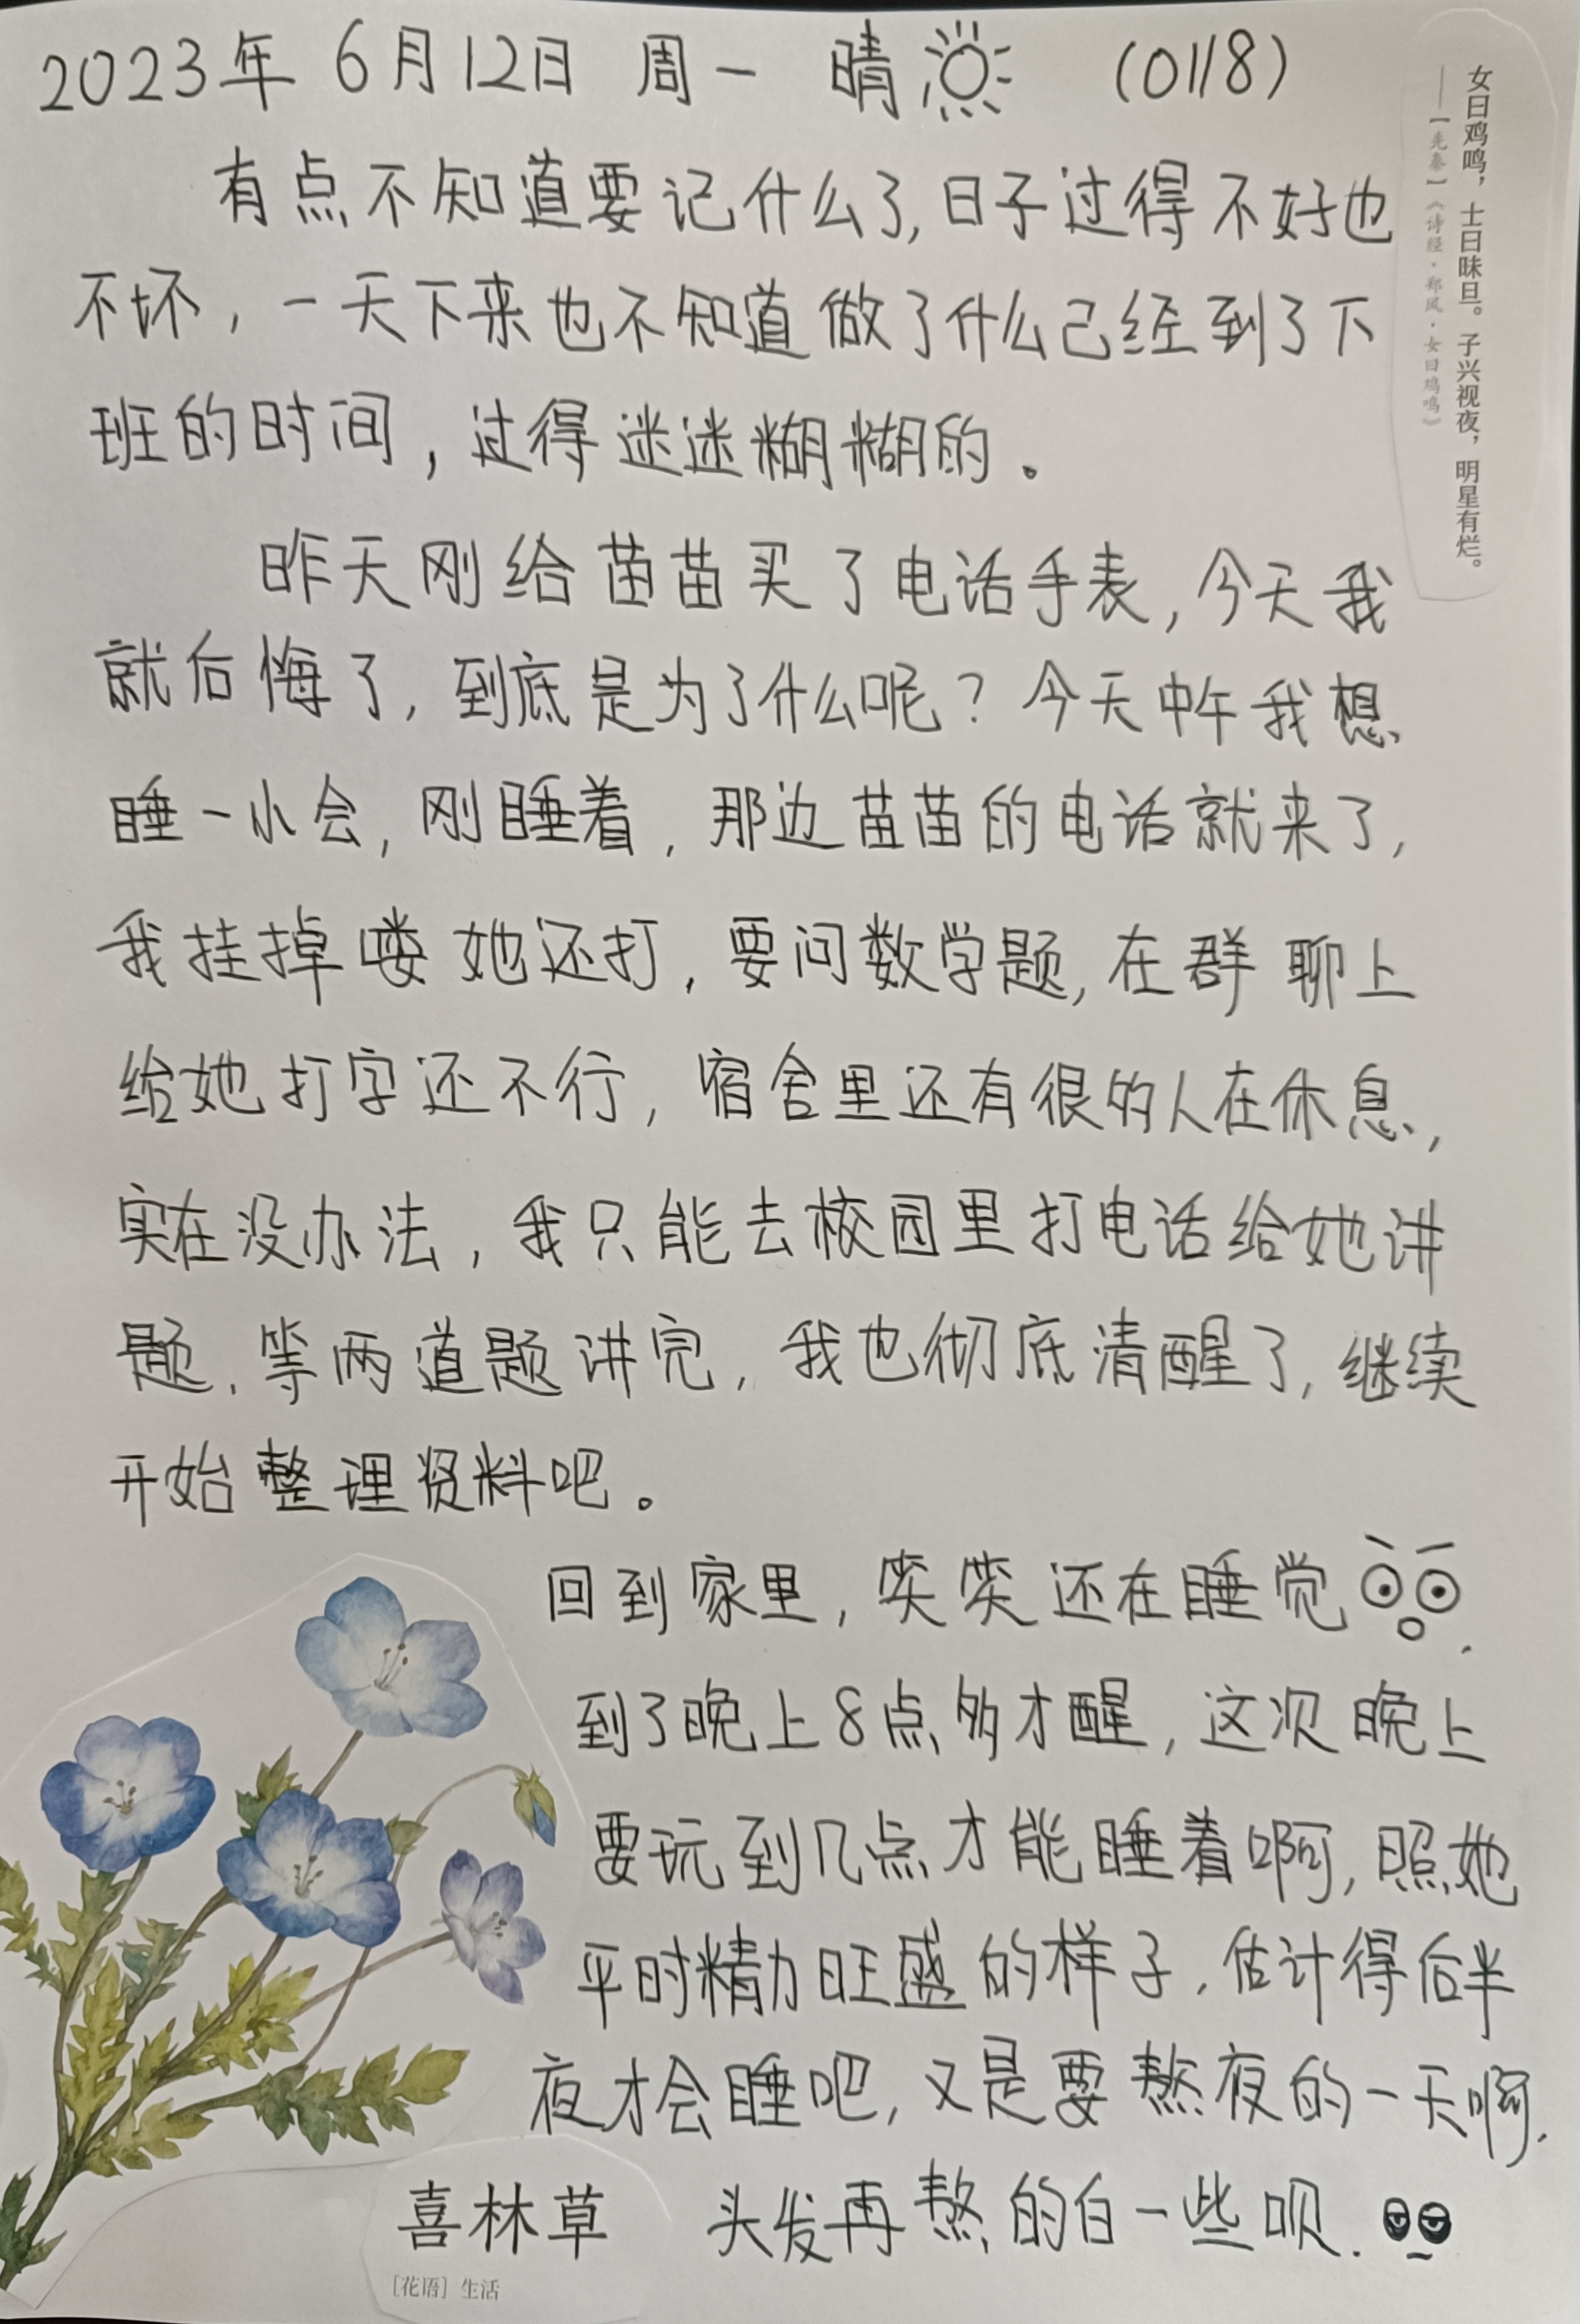 2023年 6月12日 周一 晴 (0118)
有点不知道要记什么了,日子过得不好也
不坏,一天下来也不知道做了什么己经到了下
班的时间,过得迷迷糊糊的。
昨天刚给苗苗买了电话手表,今天我
就后悔了,到底是为了什么呢?今天中午我想
睡一小会,刚睡着,那边苗苗的电话就来了,
我挂掉喽她还打,要问数学题,在群聊上
给她打字还不行,宿舍里还有很的人在休息,
实在没办法,我只能去校园里打电话给她讲
题.等两道题讲完,我也彻底清醒了,继续
开始整理资料吧。
回到家里,笑笑还在睡觉.
到了晚上8点多才醒,这次晚上
要玩到几点才能睡着啊,照她
平时精力旺盛的样子,估计得后半
夜才会睡吧,又是要熬夜的一天啊.
头发再熬的白一些呗.
喜林草
[花语] 生活
女曰鸡鸣,士曰昧旦。子兴视夜,明星有烂。
——【先秦】《诗经·郑风·女曰鸡鸣》